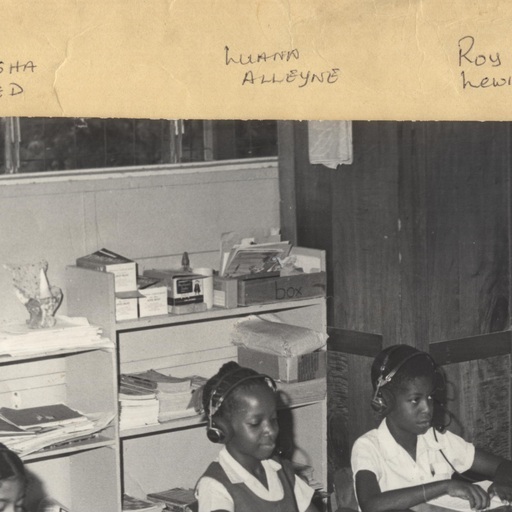 SHA
ED
LUANN
ALLEYNE
Roy
Lewi
box